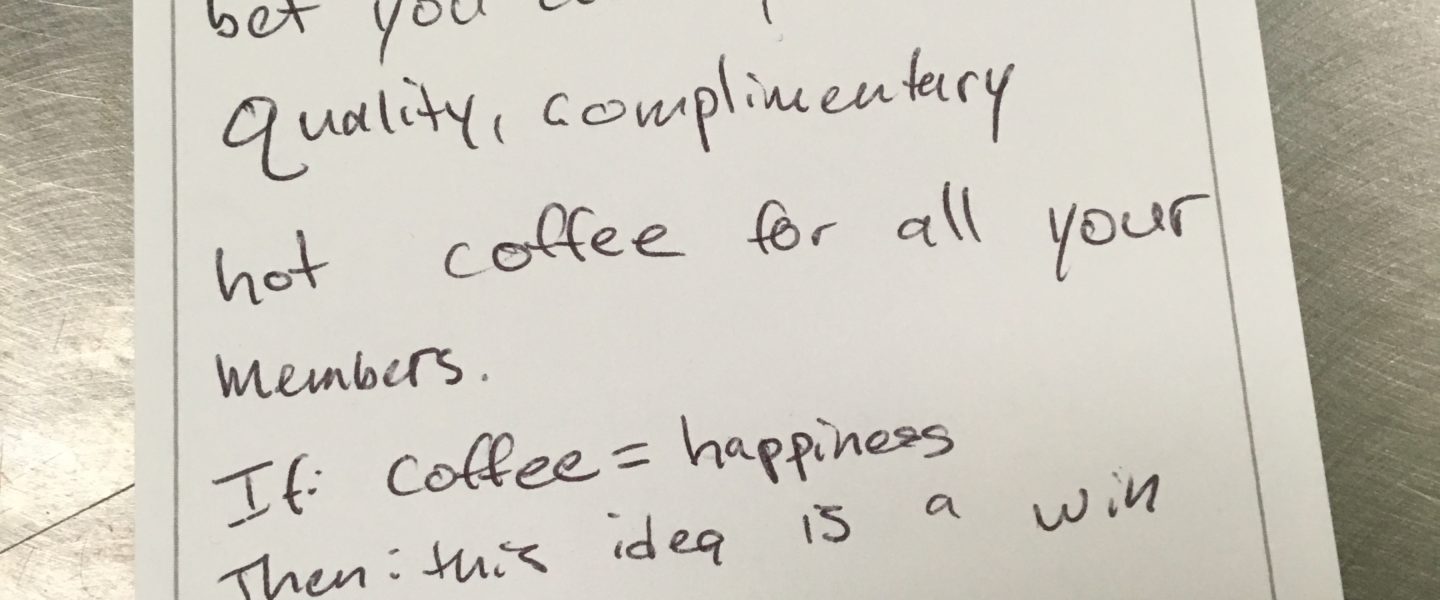 bet you
Quality, complimentary
hot coffee for all your
members.
If: coffee = happiness
Then: this idea is a win